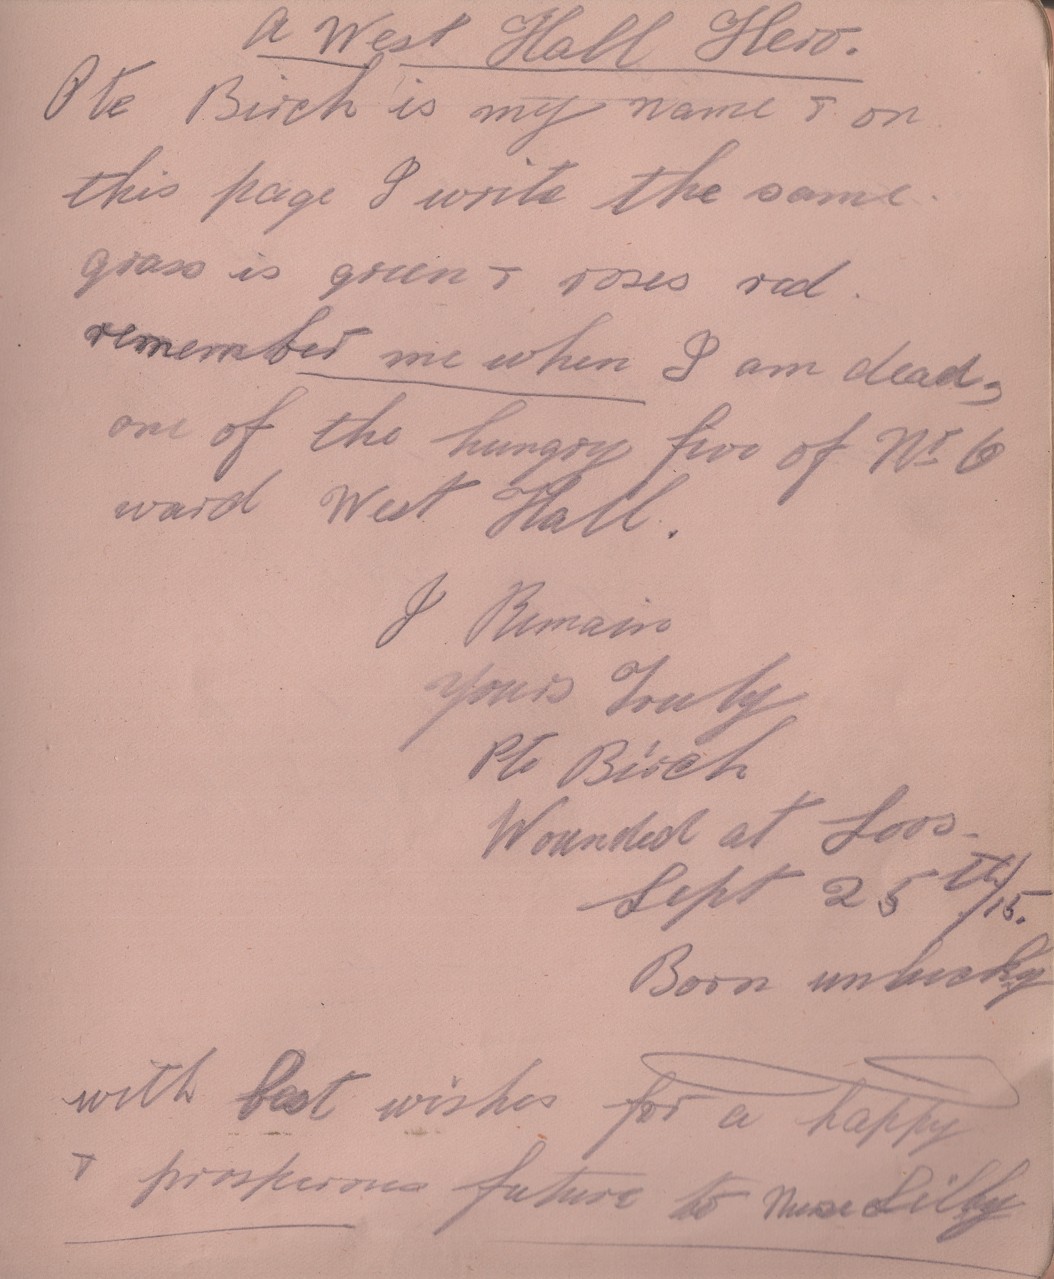 A West Hall Hero.
Pte Birch is my name & on
this page I write the same.
grass is green & roses red.
remember me when I am dead,
one of the hungry five of No 6
ward West Hall.
I Remain
Yours Truly
Pte Birch
Wounded at Loos-
Sept 25th/15.
Born unlucky
with best wishes for a happy
& prosperous future to Nurse Silby